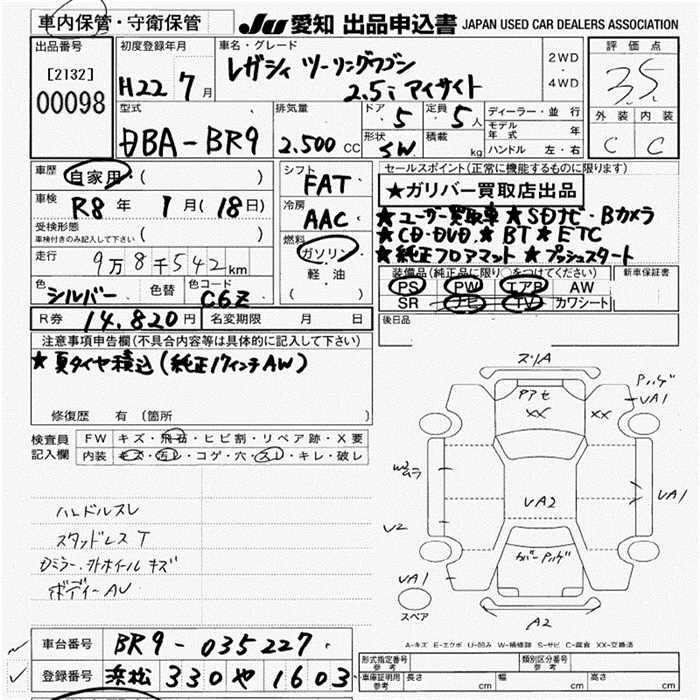 車内保管・守衛保管 JU 愛知 出品申込書 JAPAN USED CAR DEALERS ASSOCIATION
出品番号 初度登録年月 車名・グレード 評価点
[2132] 00098 H22 7月 レガシィ ツーリングワゴン 2.5i アイサイト 2WD ・ 4WD 3.5
型式 排気量 ドア 定員 ディーラー・並行 外装 内装
DBA-BR9 2.500 CC 5 5人 モデル年式 年 C C
形状 SW 積載 kg ハンドル 左・右
車歴 自家用 ( ) シフト FAT セールスポイント(正常に機能するものに限ります)
車検 R8年 1月(18日) 冷房 AAC ★ガリバー買取店出品
受検形態 車検付きのみ記入して下さい ( ) 燃料 ガソリン 軽油 ( )
★ユーザー買取車 ★SDナビ・Bカメラ
★CD・DVD.★BT★ETC
★純正フロアマット★プッシュスタート
走行 9万8千542km
装備品(純正品に限り○をつけてください) 新車保証書
色 シルバー 色替 色コード C6Z PS PW エアB AW
SR ナビ TV カワシート
R券 14.820円 名変期限 月 日 後日品
注意事項申告欄(不具合内容等は具体的に記入して下さい)
★夏タイヤ積込(純正17インチAW)
修復歴 有(箇所 )
検査員記入欄 FW キズ・飛石・ヒビ割・リペア跡・X要
内装 キズ・汚レ・コゲ・穴・スレ・キレ・破レ
ハンドルスレ
スタッドレス T
Dミラー・外ホイール キズ
ボディーAU
ズリA
アアセ
XX XX
バンパゲ
VA1
W2
ムラ
VA2
VA1
V2
カバーハゲ
VA1
スペア
A2
A-キズ E-エクボ U-凹み W-補修跡 S-サビ C-腐食 XX-交換済
車台番号 BR9-035227
登録番号 浜松 330 や 1603
形式指定番号 参考 類別区分番号 参考
車庫証明用 参考 長さ cm 幅 cm 高さ cm